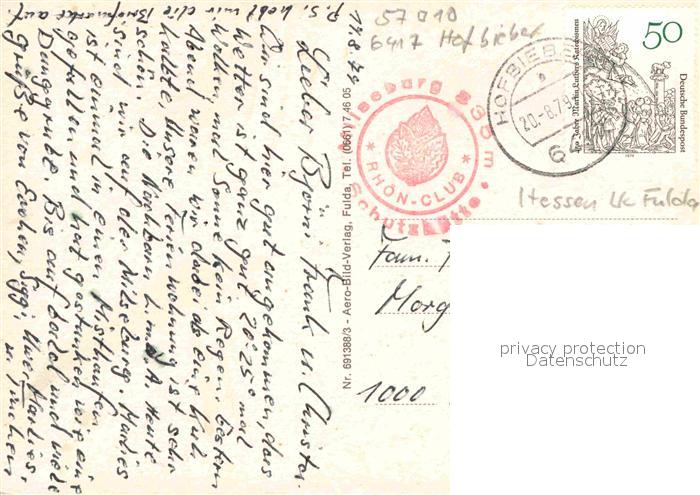 P.S. hebt mir die Briefmarke auf
19.8.79
Liebe Björn, Frank u. Christa.
Wir sind hier gut angekommen, das
Wetter ist ganz gut 20-25° mal
Wolken mal Sonne kein Regen. Gestern
Abend waren wir
hatte. Unsere Ferienwohnung ist sehr
schön. Die Nachbarn Heute
sind wir auf der Milseburg. Marlies
ist einmal in einen Misthaufen
gefallen und hat gestunken wie eine
Dunggrube. Bis auf bald und viele
Grüße von Euchen, Siggi, Uwe, Marlies,
u. Jochen
57 010
6417 Hofbieber
Milseburg 835m
RHÖN-CLUB
Schutzhütte
HOFBIEBER
20.-8.79
64
50
450 Jahre Martin Luthers Katechismen
Deutsche Bundespost
1979
Hessen LK Fulda
Nr. 691388/3 - Aero-Bild-Verlag, Fulda, Tel. (0661) 7 46 05
Fam.
Morg
1000
privacy protection
Datenschutz